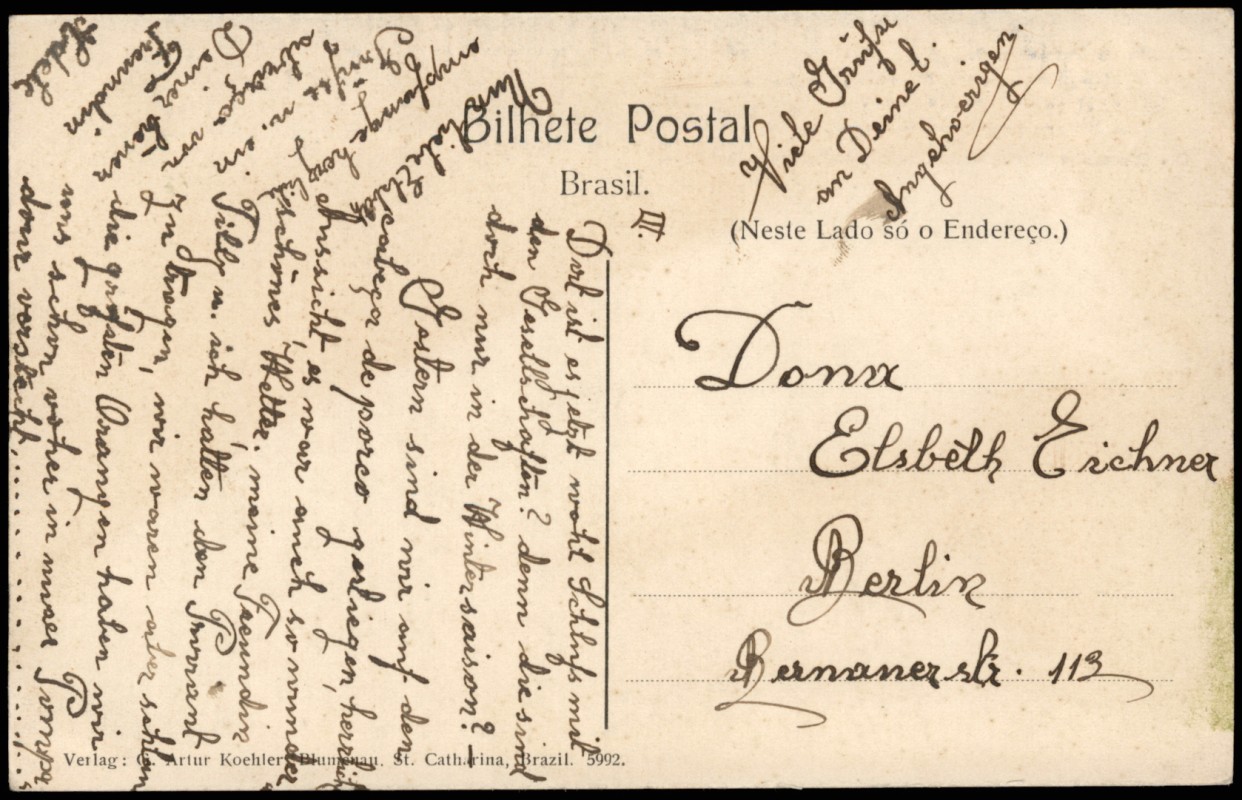 Bilhete Postal
Brasil.
(Neste Lado só o Endereço.)
Viele Grüße
an Deine l.
Angehoerigen.
Dona
Elsbeth Eichner
Berlin
Bernauerstr. 113
III.
Dort ist es jetzt wohl Schluss mit
den Gesellschaften? denn die sind
doch nur in der Wintersaison? –
Gestern sind wir auf den
cabeça de porco gestiegen, herrlich
Aussicht, es war auch so wunder
schönes Wetter; meine Freundin
Tilly u. ich hatten den Proviant
zu tragen, wir waren aber schlau
die größten Orangen haben wir
uns schon vorher in unser Pompa
dour versteckt
Nun liebe
empfange herzl.
Grüße u.
von
Deiner
Freundin
Adele
Verlag: G. Artur Koehler, Blumenau. St. Catharina, Brazil. 5992.